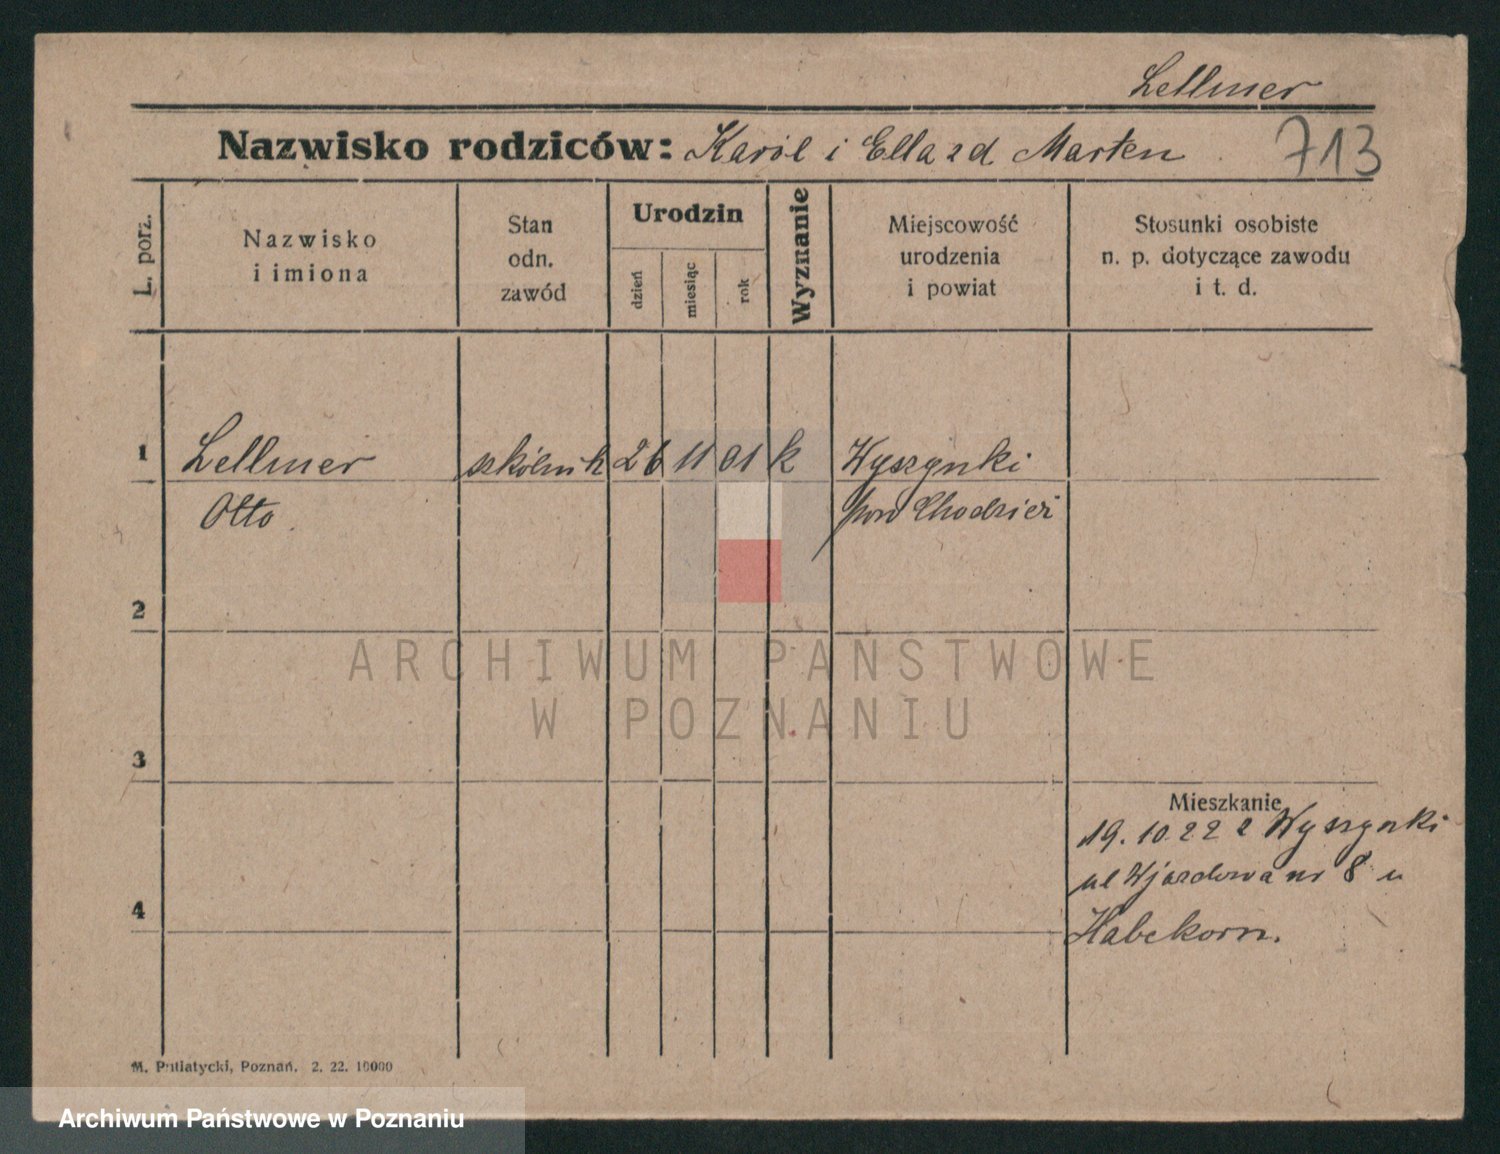 Lellmer
Nazwisko rodziców: Karol i Ella zd Marten 713
L. porz.
Nazwisko
i imiona
Stan
odn.
zawód
Urodzin
dzień
miesiąc
rok
Wyznanie
Miejscowość
urodzenia
i powiat
Stosunki osobiste
n. p. dotyczące zawodu
i t. d.
1 Lellmer szkólnik 26 11 01 k Wyszynki
Otto pow Chodzież
2
ARCHIWUM PAŃSTWOWE
W POZNANIU
3
Mieszkanie
19.10.22 z Wyszynki
ul Wjazdowa nr 8 u
4
Habekorn.
M. Putiatycki, Poznań. 2. 22. 10000
Archiwum Państwowe w Poznaniu